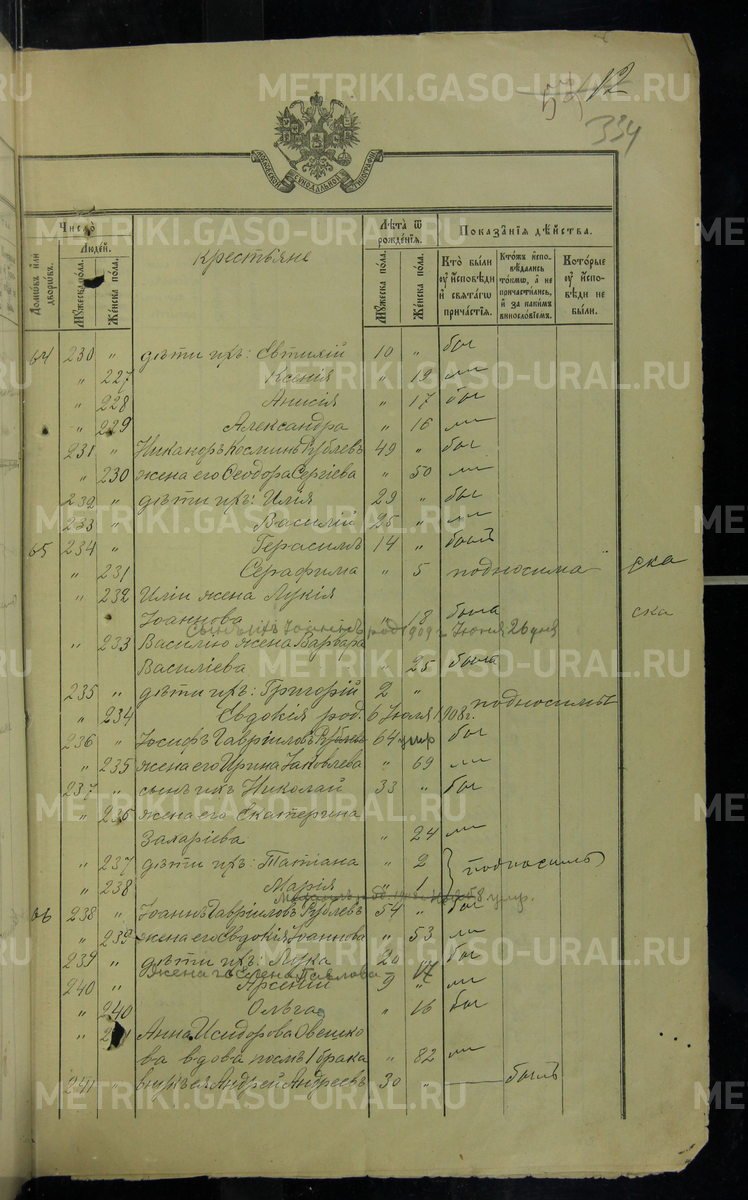 METRIKI.GASO-URAL.RU
12
334
МОСКОВСКОЙ СѴНОДАЛЬНОЙ ТИПОГРАФІИ
Число̀
Людей.
Лѣта̀ ѿ рожденїѧ.
Показанїѧ дѣйства.
Домѡвъ или дворѡвъ.
Мꙋжеска по́ла.
Же́нска по́ла.
Крестьяне
Мꙋжеска по́ла.
Же́нска по́ла.
Кто̀ были ᲂу҆ и҆сповѣди и҆ свѧтагѡ причастїѧ.
Кто́жъ и҆сповѣдались то́кмѡ, а҆ не причастились, и҆ за какимъ винословїемъ.
Которые ᲂу҆ и҆сповѣди не были.
64 230 " дѣти ихъ: Евтихій 10 " был
" 227 Ксенія " 19
" 228 Анисія " 17 был
" 229 Александра " 16
231 " Никаноръ Косминъ Рублевъ 49 " был
" 230 жена его Ѳеодора Сергіева " 50
232 " дѣти ихъ: Илія 29 " был
233 " Василій 25 "
65 234 " Герасимъ 14 " былъ
" 231 Серафима " 5 подносима ска
" 232 Иліи жена Лукія
Іоаннова " 18 была ска
сынъ ихъ Іоаннъ род. 1909 г. Іюня 26 дня
" 233 Василію жена Варвара
Василіева " 25 была
235 " дѣти ихъ: Григорій 2 "
" 234 Евдокія род. 6 Іюля 1908 г. подносимы
236 " Іосифъ Гавріиловъ Рублевъ 64 умр был
" 235 жена его Ирина Іаковлева " 69
237 " сынъ ихъ Николай 33 " был
" 236 жена его Екатерина
Захаріева " 24
" 237 дѣти ихъ: Татіана " 2
" 238 Марія " 1 подносимы
умр.
66 238 " Іоаннъ Гавріиловъ Рублевъ 54 " был
" 239 жена его Евдокія Іоаннова " 53
239 " дѣти ихъ: Лука 20 " был
жена его Елена Павлова
240 " Арсеній 9 "
" 240 Ольга " 16 был
" 241 Анна Исидорова Овешко
ва вдова послѣ 1 брака " 82
241 " внукъ ея Андрей Андреевъ 30 " былъ